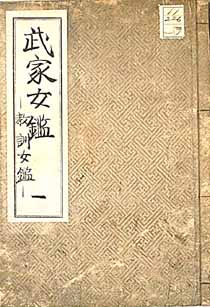 武家女鑑
教訓女鑑
一